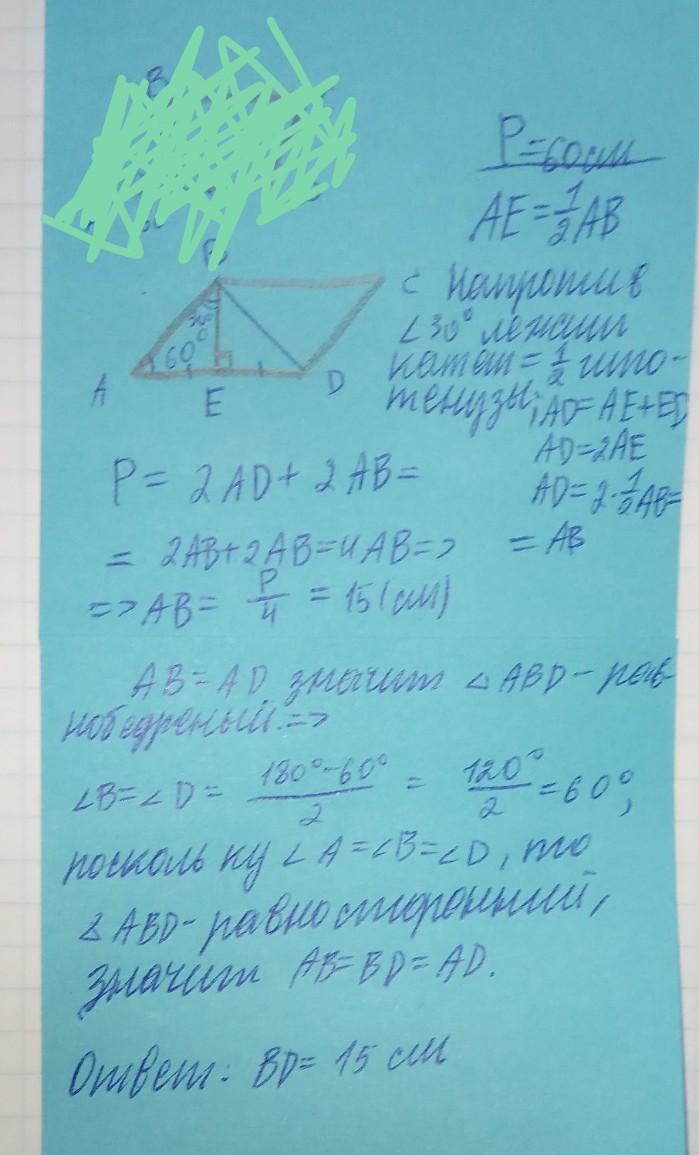 B
P=60см
AE=1/2AB
B
C напротив
∠30° лежит
60°
A
E
D
катет=1/2 гипо-
тенузы; AD=AE+ED
AD=2AE
AD=2·1/2AB=
= AB
P= 2AD+ 2AB=
= 2AB+2AB=4AB=>
=> AB= P/4 = 15(см)
AB=AD значит △ABD- рав-
нобедреный.=>
∠B=∠D= 180°-60°/2 = 120°/2 =60°,
посколь ку ∠A=∠B=∠D, то
△ABD- равносторонний,
значит AB=BD=AD.
Ответ: BD= 15 см